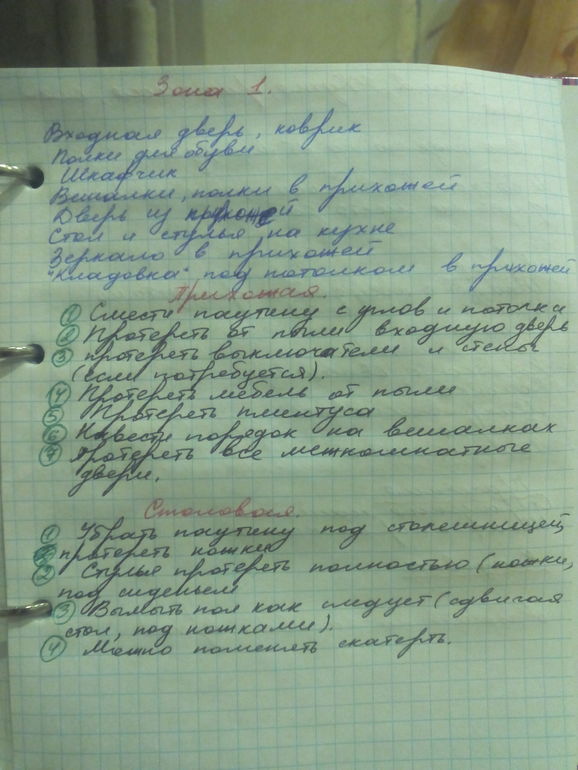 Зона 1.
Входная дверь, коврик
Полки для обуви
Шкафчик
Вешалки, полки в прихожей
Дверь из
Стол и стулья на кухне
Зеркало в прихожей
"Кладовка" под потолком в прихожей
Прихожая.
1 Смести паутину с углов и потолка
2 Протереть от пыли входную дверь
3 протереть выключатели и стены
(если потребуется).
4 Протереть мебель от пыли
5 Протереть плинтуса
6 Навести порядок на вешалках
7 Протереть все межкомнатные
двери.
Столовая.
1 Убрать паутину под столешницей,
протереть ножки
2 Стулья протереть полностью (ножки,
под сиденьем
3 Вымыть пол как следует (сдвигая
стол, под ножками).
4 Можно поменять скатерть.